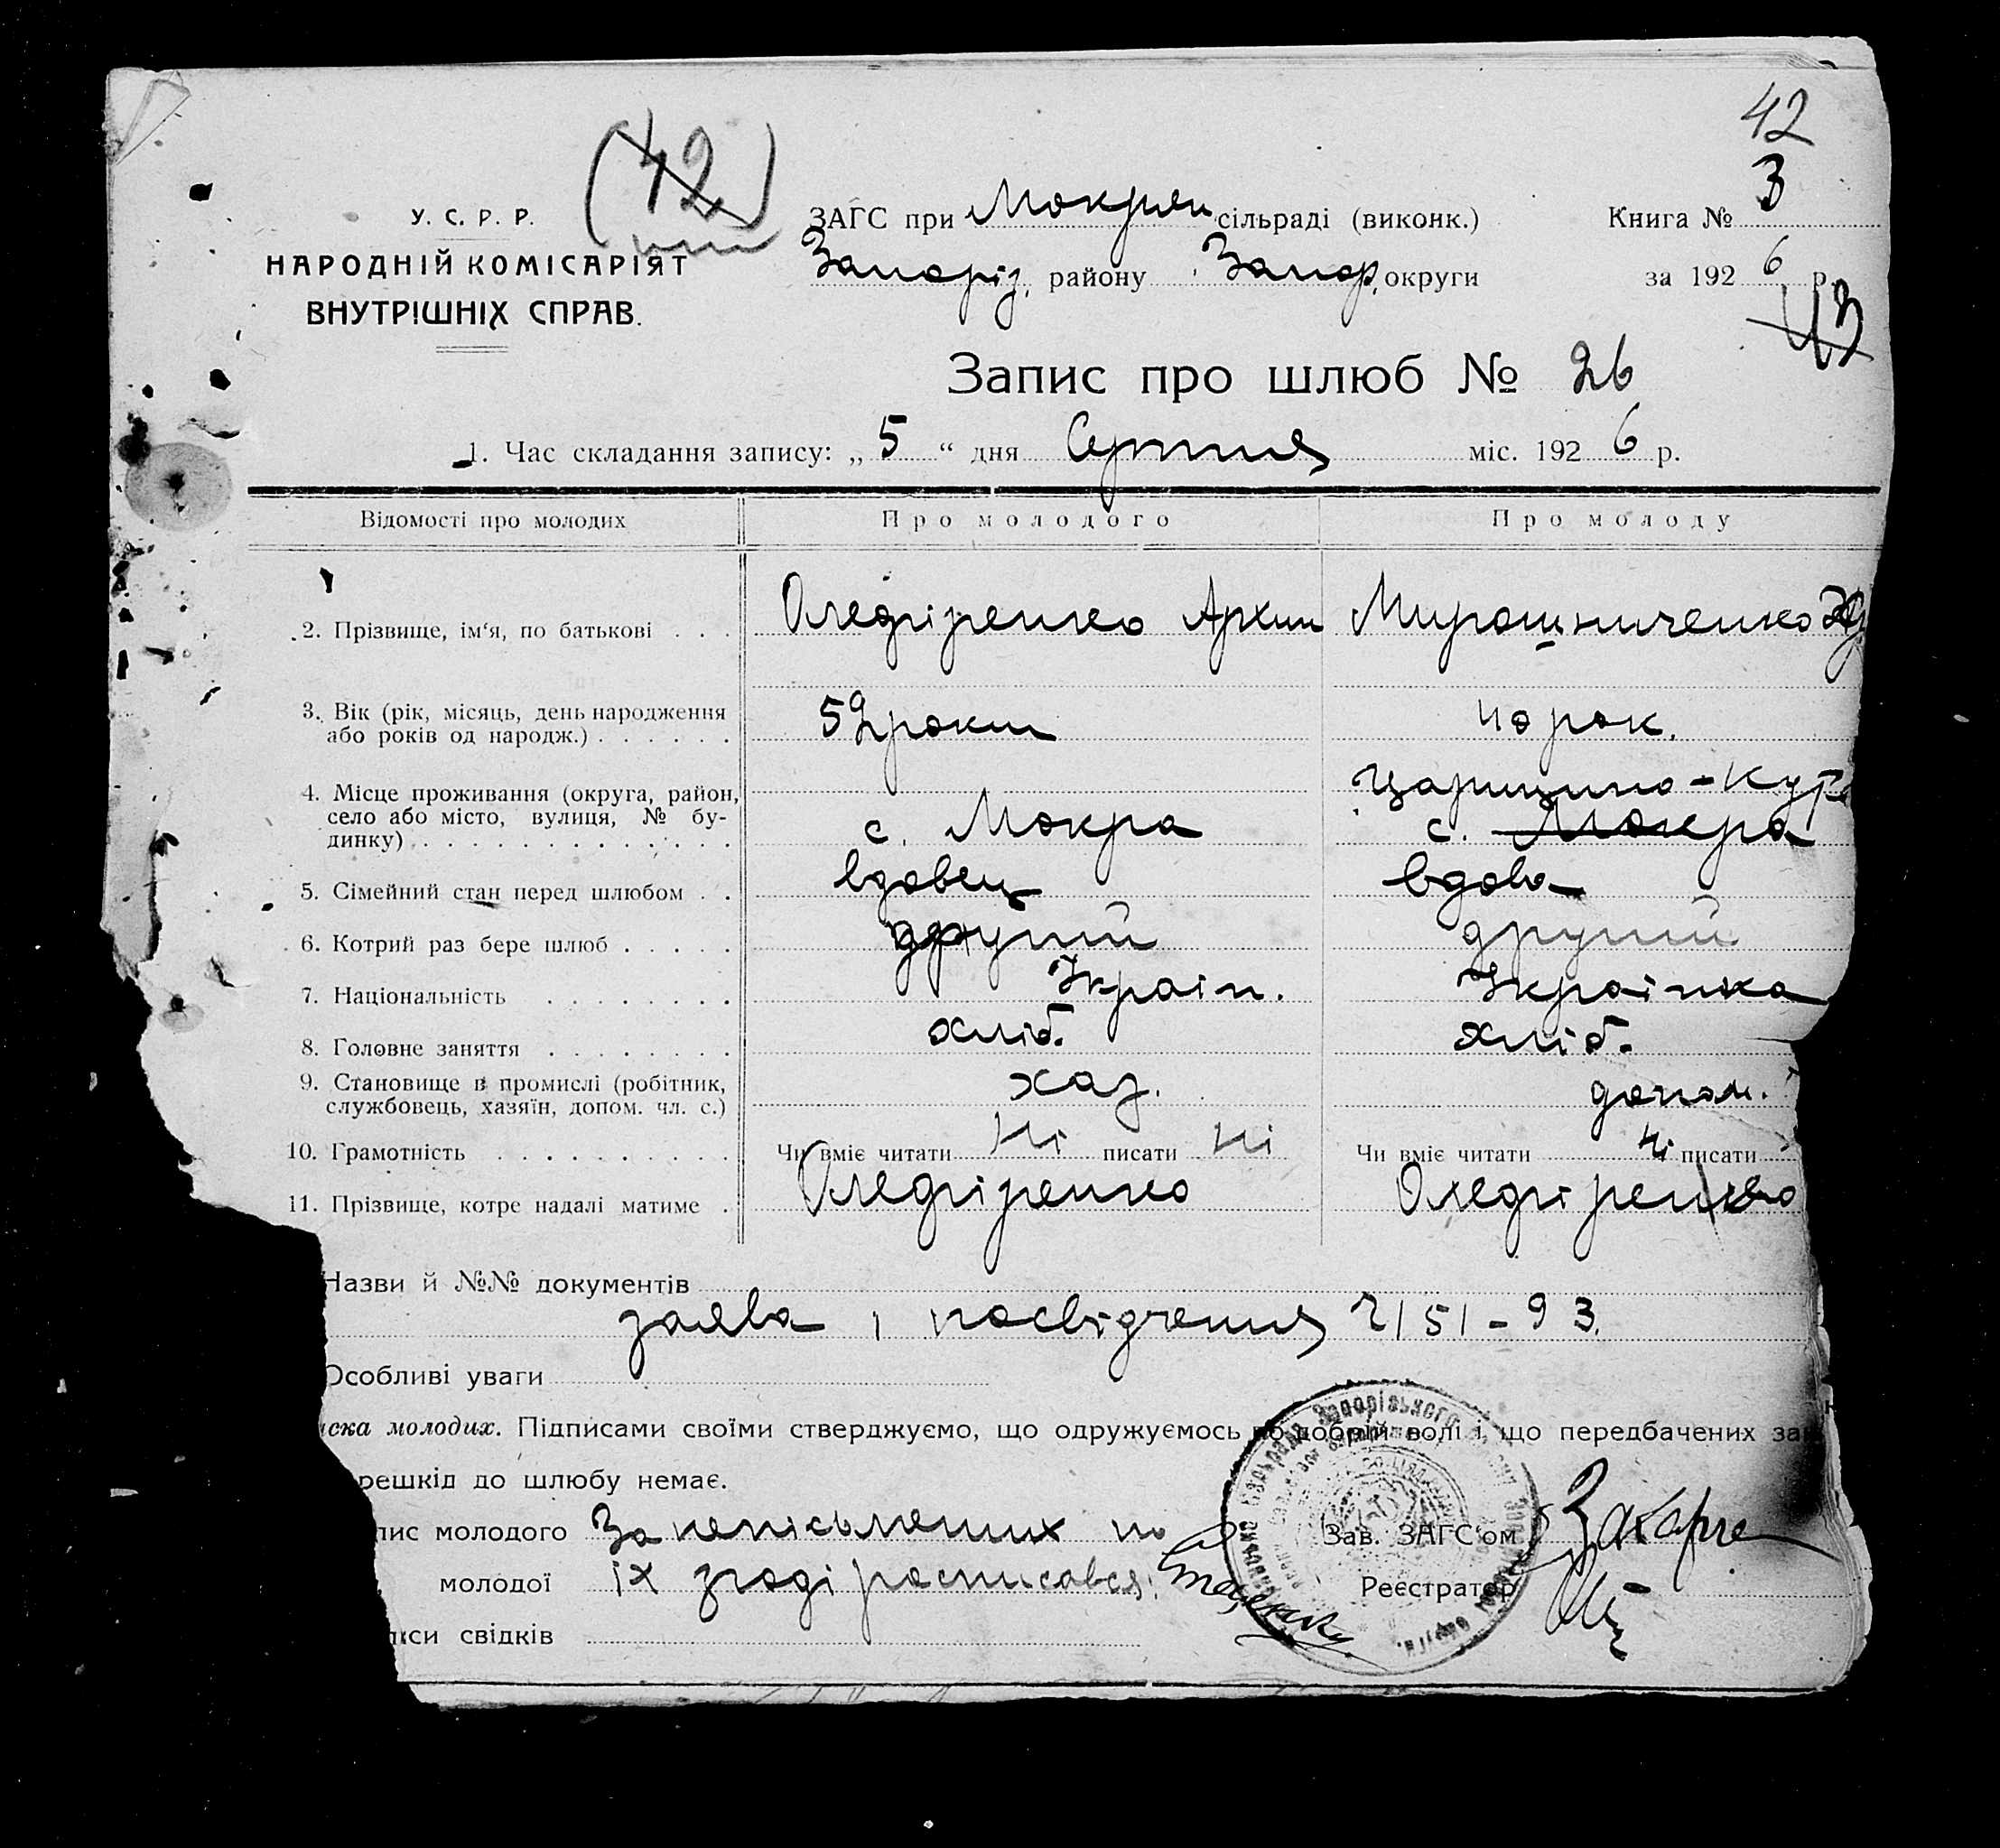 42
(42)
У. С. Р. Р.
НАРОДНІЙ КОМІСАРІЯТ
ВНУТРІШНІХ СПРАВ.
ЗАГС при Мокрян сільраді (виконк.) Книга № 3
Запоріз. району Запор. округи за 1926 р.
43
Запис про шлюб № 26
1. Час складання запису: „5“ дня Серпня міс. 1926 р.
Відомості про молодих Про молодого Про молоду
2. Прізвище, ім‘я, по батькові . . . Оледгіренко Архип Мирошниченко
3. Вік (рік, місяць, день народження 52 роки 40 рок.
або років од народж.) . . . . . .
Царицино-Кут
4. Місце проживання (округа, район,
село або місто, вулиця, № бу- с. Мокра с. Мокра
динку) . . . . . . . . . . . . .
5. Сімейний стан перед шлюбом . . вдовец вдова
6. Котрий раз бере шлюб . . . . . другий другий
7. Національність . . . . . . . . Україн. Українка
8. Головне заняття . . . . . . . . хліб. хліб.
9. Становище в промислі (робітник, хаз. допом.
службовець, хазяїн, допом. чл. с.)
10. Грамотність . . . . . . . . . . Чи вміє читати Ні писати Ні Чи вміє читати ні писати
11. Прізвище, котре надалі матиме . Оледгіренко Оледгіренко
Назви й №№ документів
заява і посвідчення 2/51-93.
Особливі уваги
иска молодих. Підписами своїми стверджуємо, що одружуємось по добрій волі і що передбачених за
решкід до шлюбу немає.
пис молодого За неписьменних по Зав. ЗАГС‘ом
молодої їх згоді росписався: Реєстратор
писи свідків